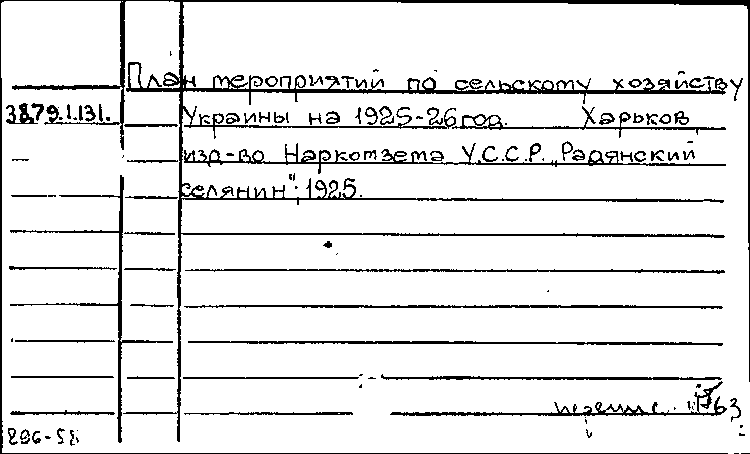 План мероприятий по сельскому хозяйству
3879.1.131. Украины на 1925-26 год. Харьков,
изд-во Наркомзема У.С.С.Р. „Радянский
селянин", 1925.
63
896-58